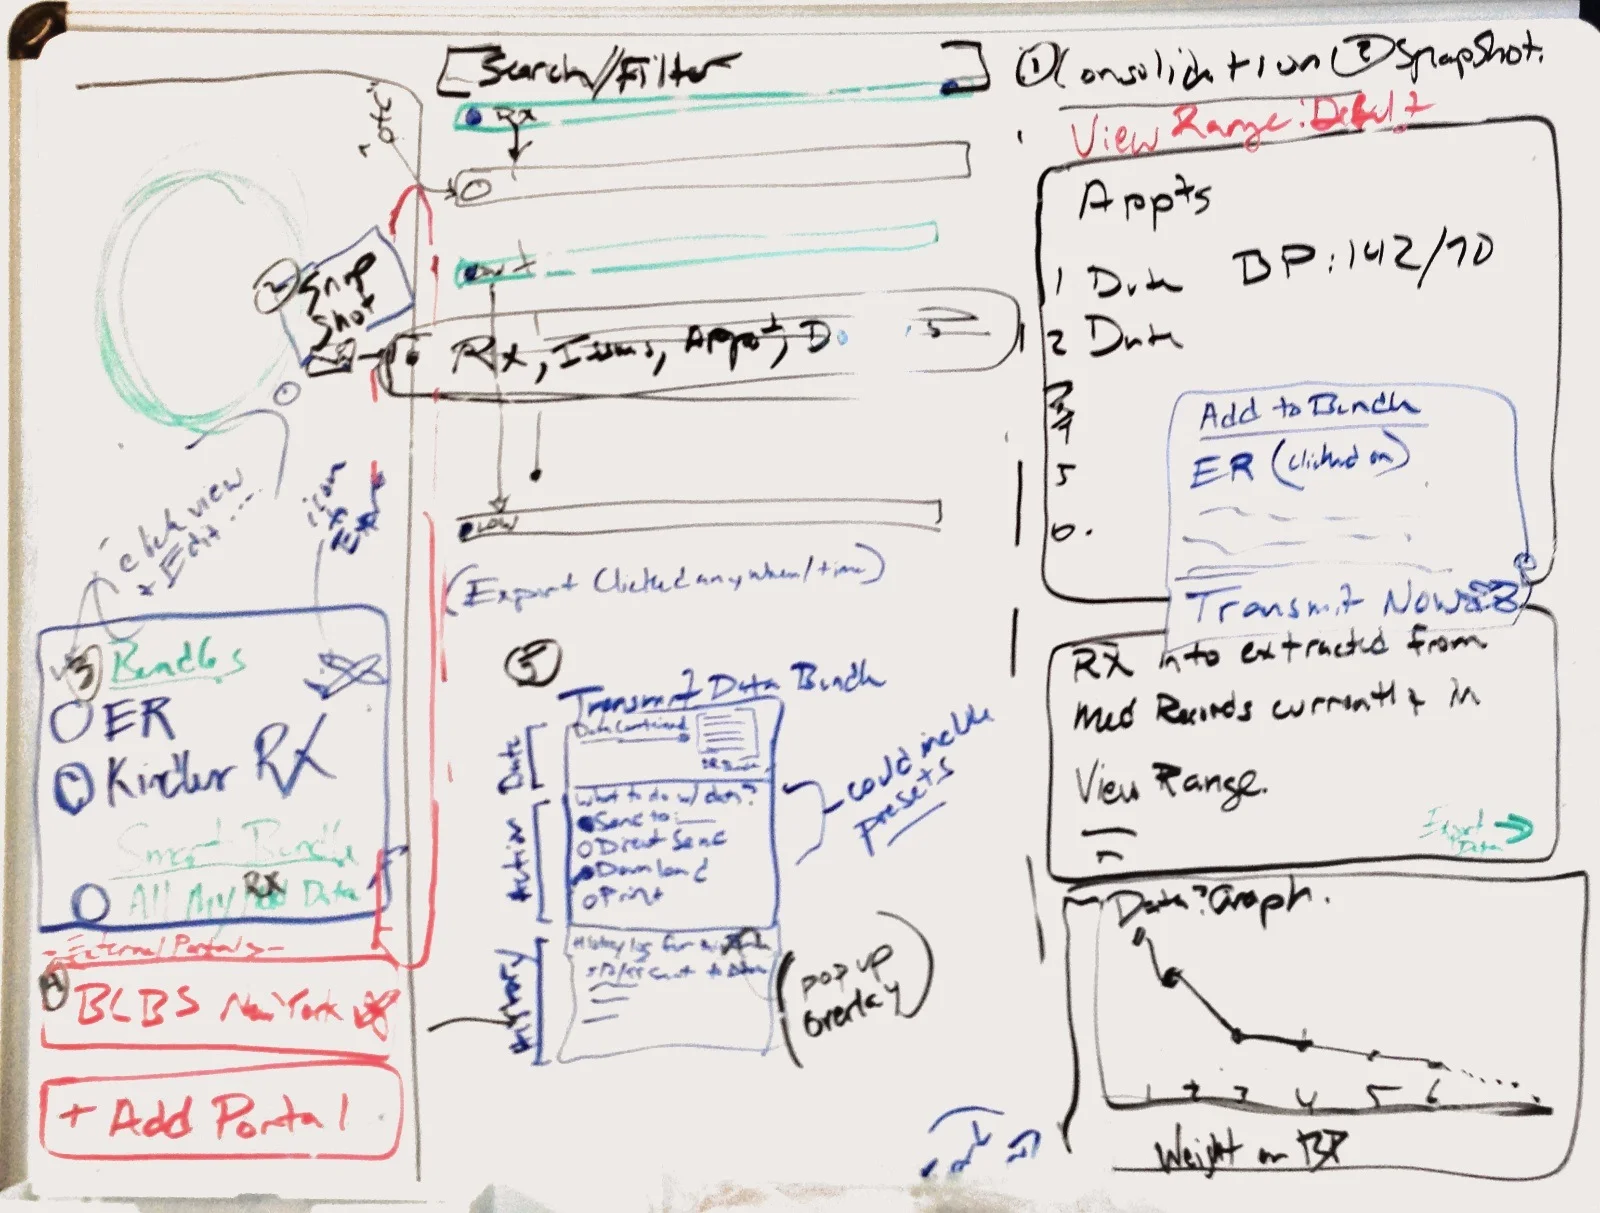 Search/Filter
① Consolidation ② SnapShot.
View Range: Default
"ote"
Rx
Appts
1 Date BP: 142/70
2 Date
3
4
5
6.
② Snap
Shot
Rx, Issues, Appt, D
Add to Bundle
ER (clicked on)
Transmit Now
click view
x Edit ....
icon
LOW
(Export Clicked anywhere/time)
③ Bundles
ER
Kindler RX
Smart Bundle
All My RX Data
External Portals
④ BLBS New York
+ Add Portal
⑤
Transmit Data Bundle
Data
Data Contained
What to do w/ data?
Action
Send to: __
Direct Send
Download
Print
History
History log for
could include
presets
(popup
overlay)
RX info extracted from
Med Records currently in
View Range.
Export
Data
Data: Graph.
1 2 3 4 5 6
Weight on BP